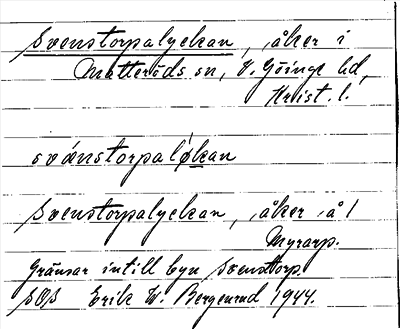 Svenstorpalyckan, åker i
Matteröds sn, V. Göinge hd,
Krist. l.
svǽnstorpaløkan
Svenstorpalyckan, åker å /
Myrarp.
Gränsar intill byn Svenstorp.
SOS Erik W. Bergenrud 1944.